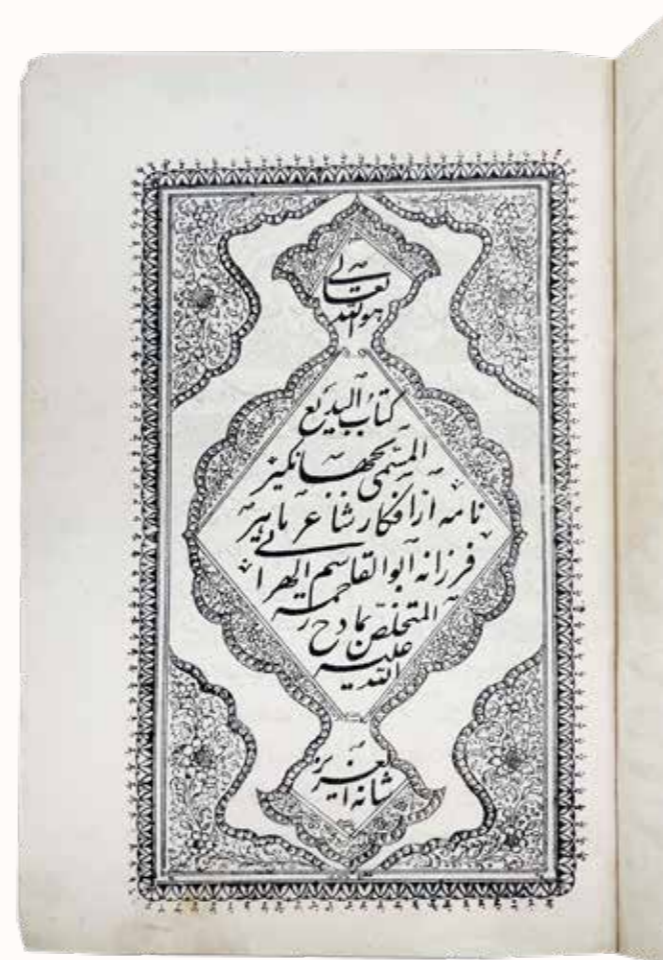 هو الله
تعالی
کتاب البدیع
المسمی بجهانگیر
نامه از افکار شاعر ماهر
فرزانه ابوالقاسم الهراتی
المتخلص بمادح رحمة
الله علیه
العزیز
شانه